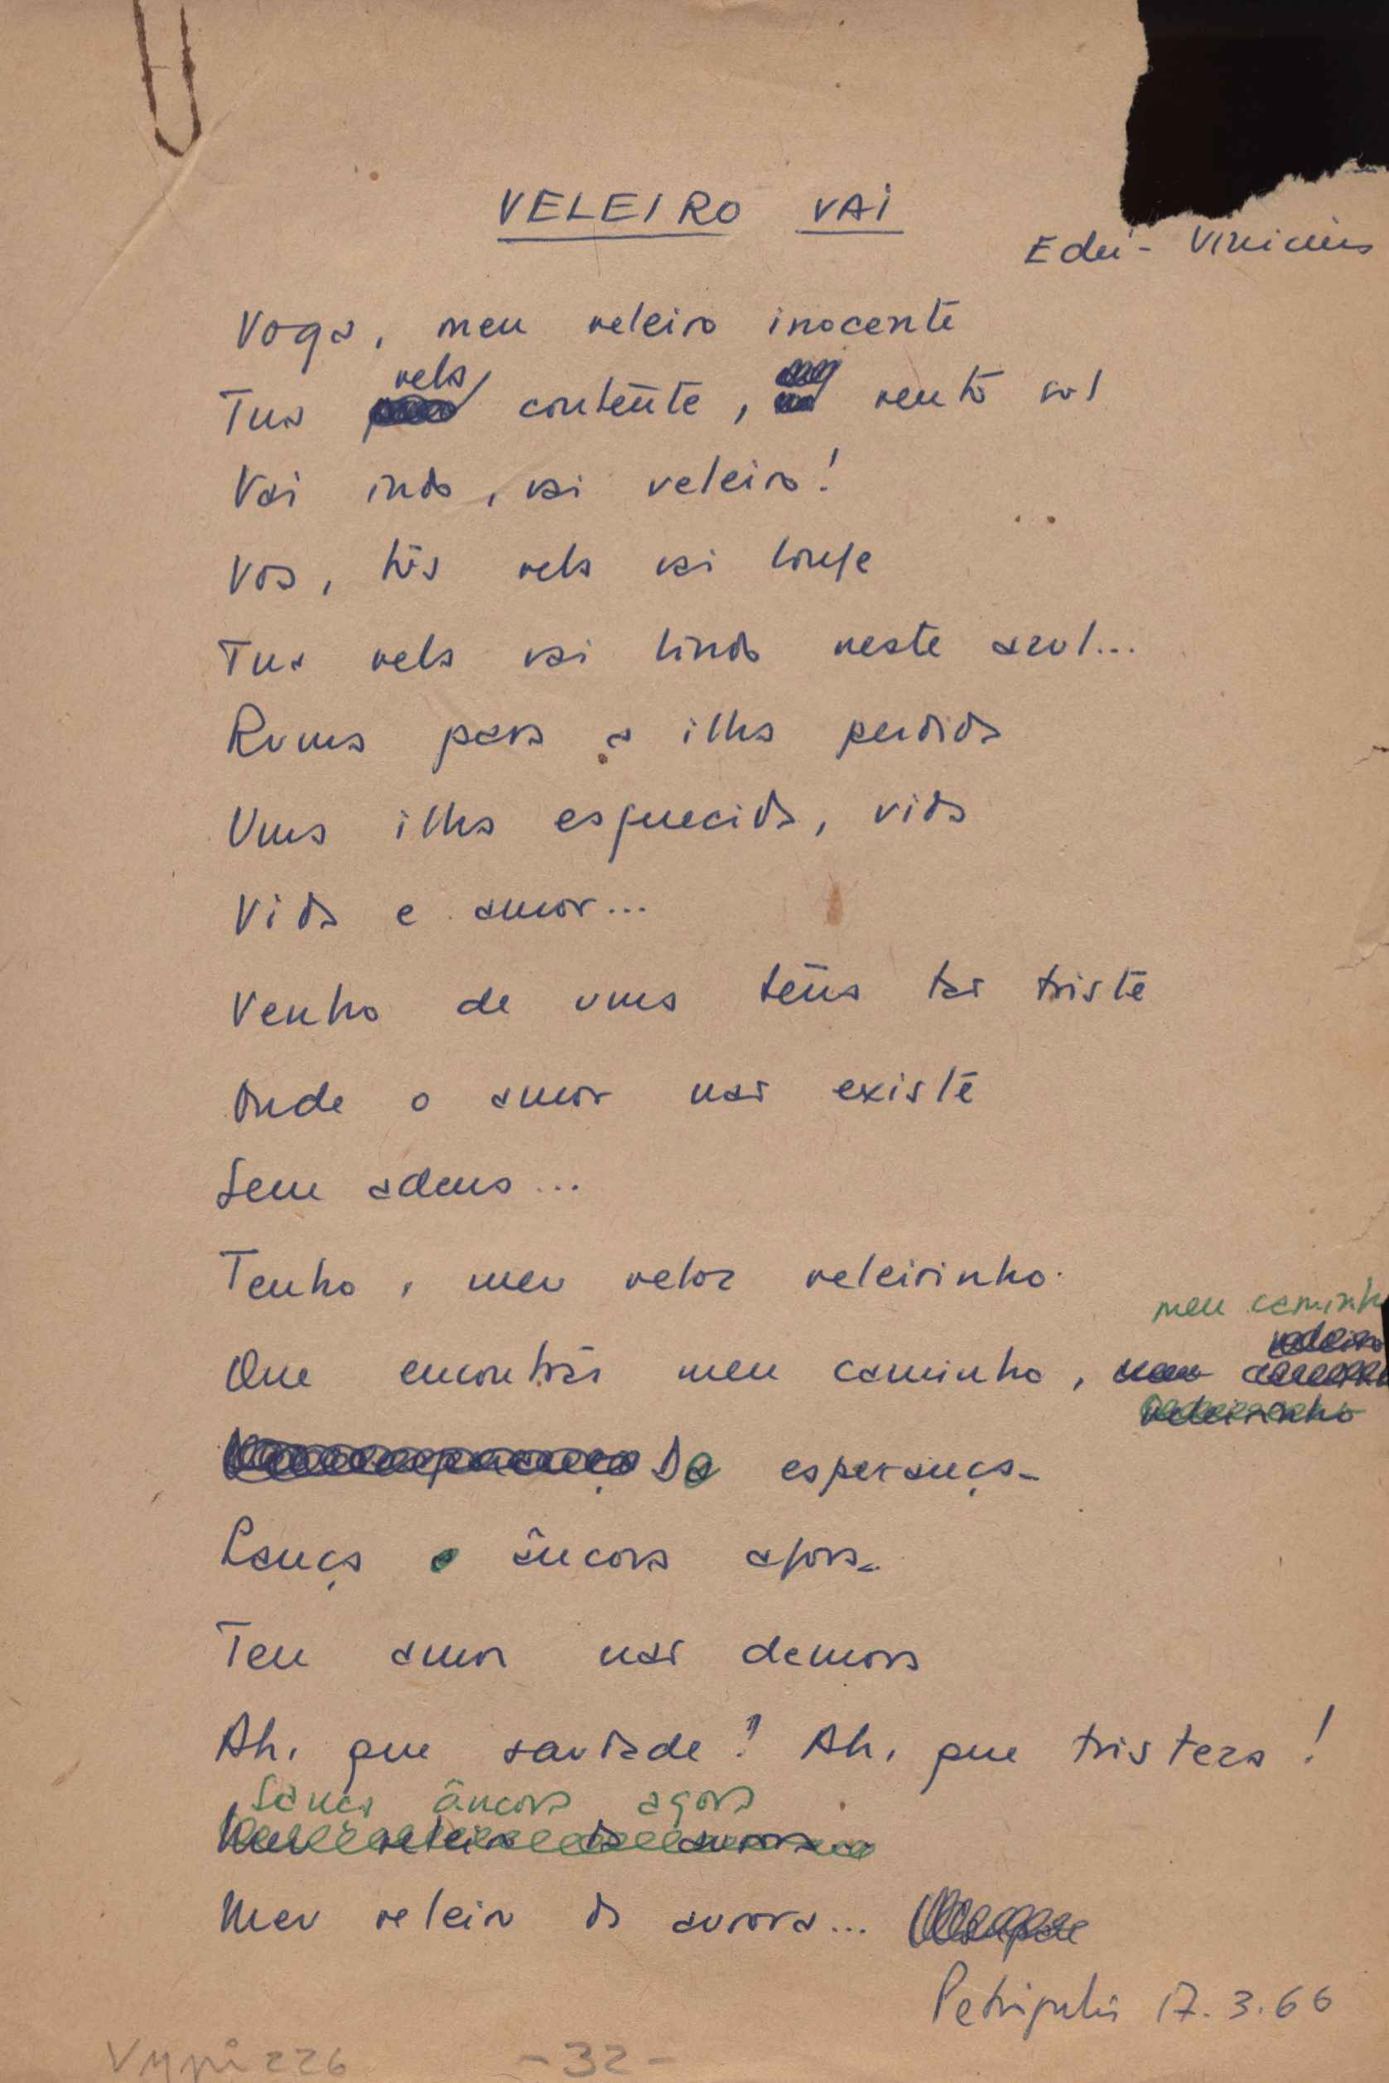 VELEIRO VAI
Edú - Vinicius
Voga, meu veleiro inocente
Tua vela contente, vento sul
Vai indo, vai veleiro!
Voa, vela vai longe
Tua vela vai linda neste azul...
Ruma para a ilha perdida
Uma ilha esquecida, vida
Vida e amor...
Venho de uma terra tão triste
Onde o amor não existe
Sem adeus...
Tenho, meu veloz veleirinho
meu caminho
Que encontrar meu caminho,
veleirinho
Da esperança
Lança a âncora agora
Teu amor não demora
Ah, que saudade! Ah, que tristeza!
Lança âncora agora
Meu veleiro da aurora
Meu veleiro da aurora...
Petrópolis 17.3.66
- 32 -